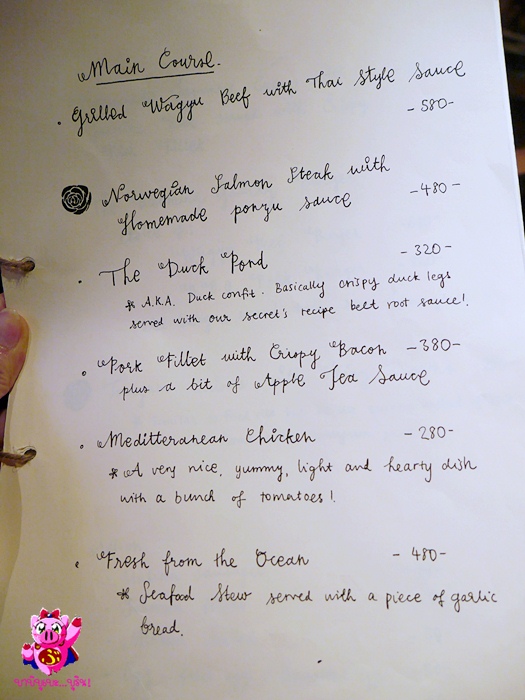 Main Course.
Grilled Wagyu Beef with Thai Style Sauce
- 580-
Norwegian Salmon Steak with
Homemade ponzu sauce -480-
The Duck Pond - 320-
* A.K.A. Duck confit. Basically crispy duck legs
served with our secret's recipe beet root sauce!.
Pork Fillet with Crispy Bacon -380-
plus a bit of Apple Tea Sauce
Meditteranean Chicken - 280-
* A very nice, yummy, light and hearty dish
with a bunch of tomatoes!.
Fresh from the Ocean - 480-
* Seafood Stew served with a piece of garlic
bread.